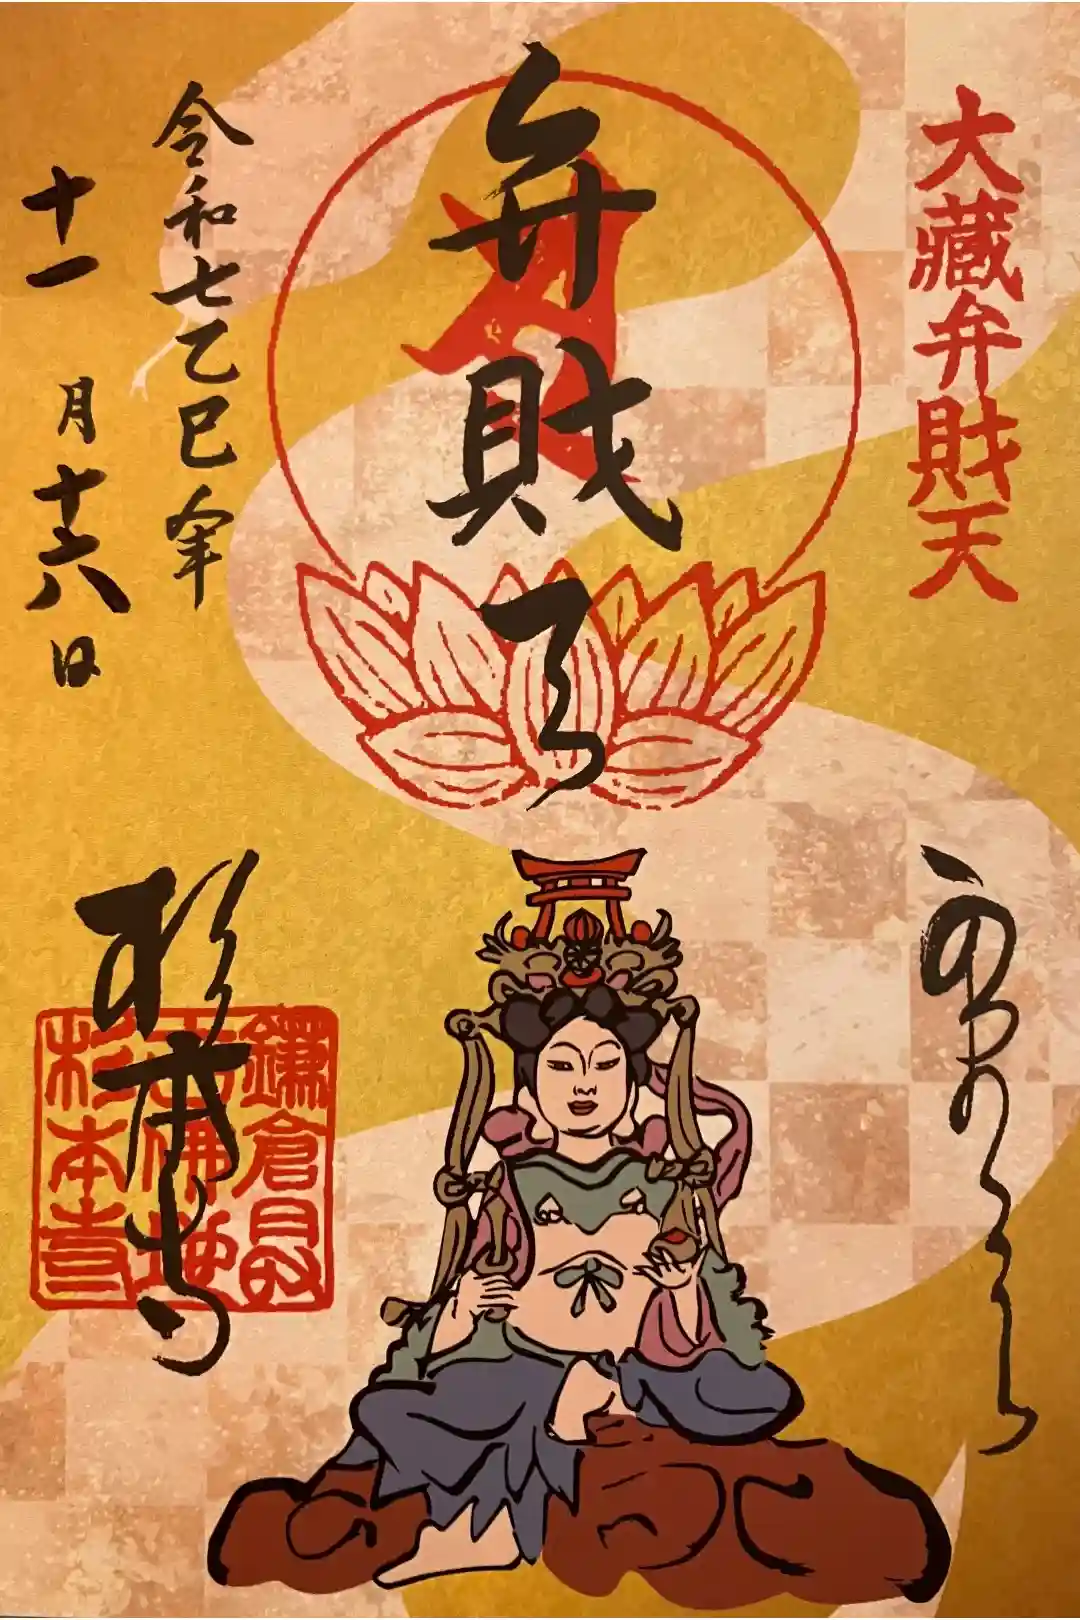 大藏弁財天
奉拝
弁財天
令和七乙巳年
十一月十六日
杉本寺
鎌倉最
杉本寺